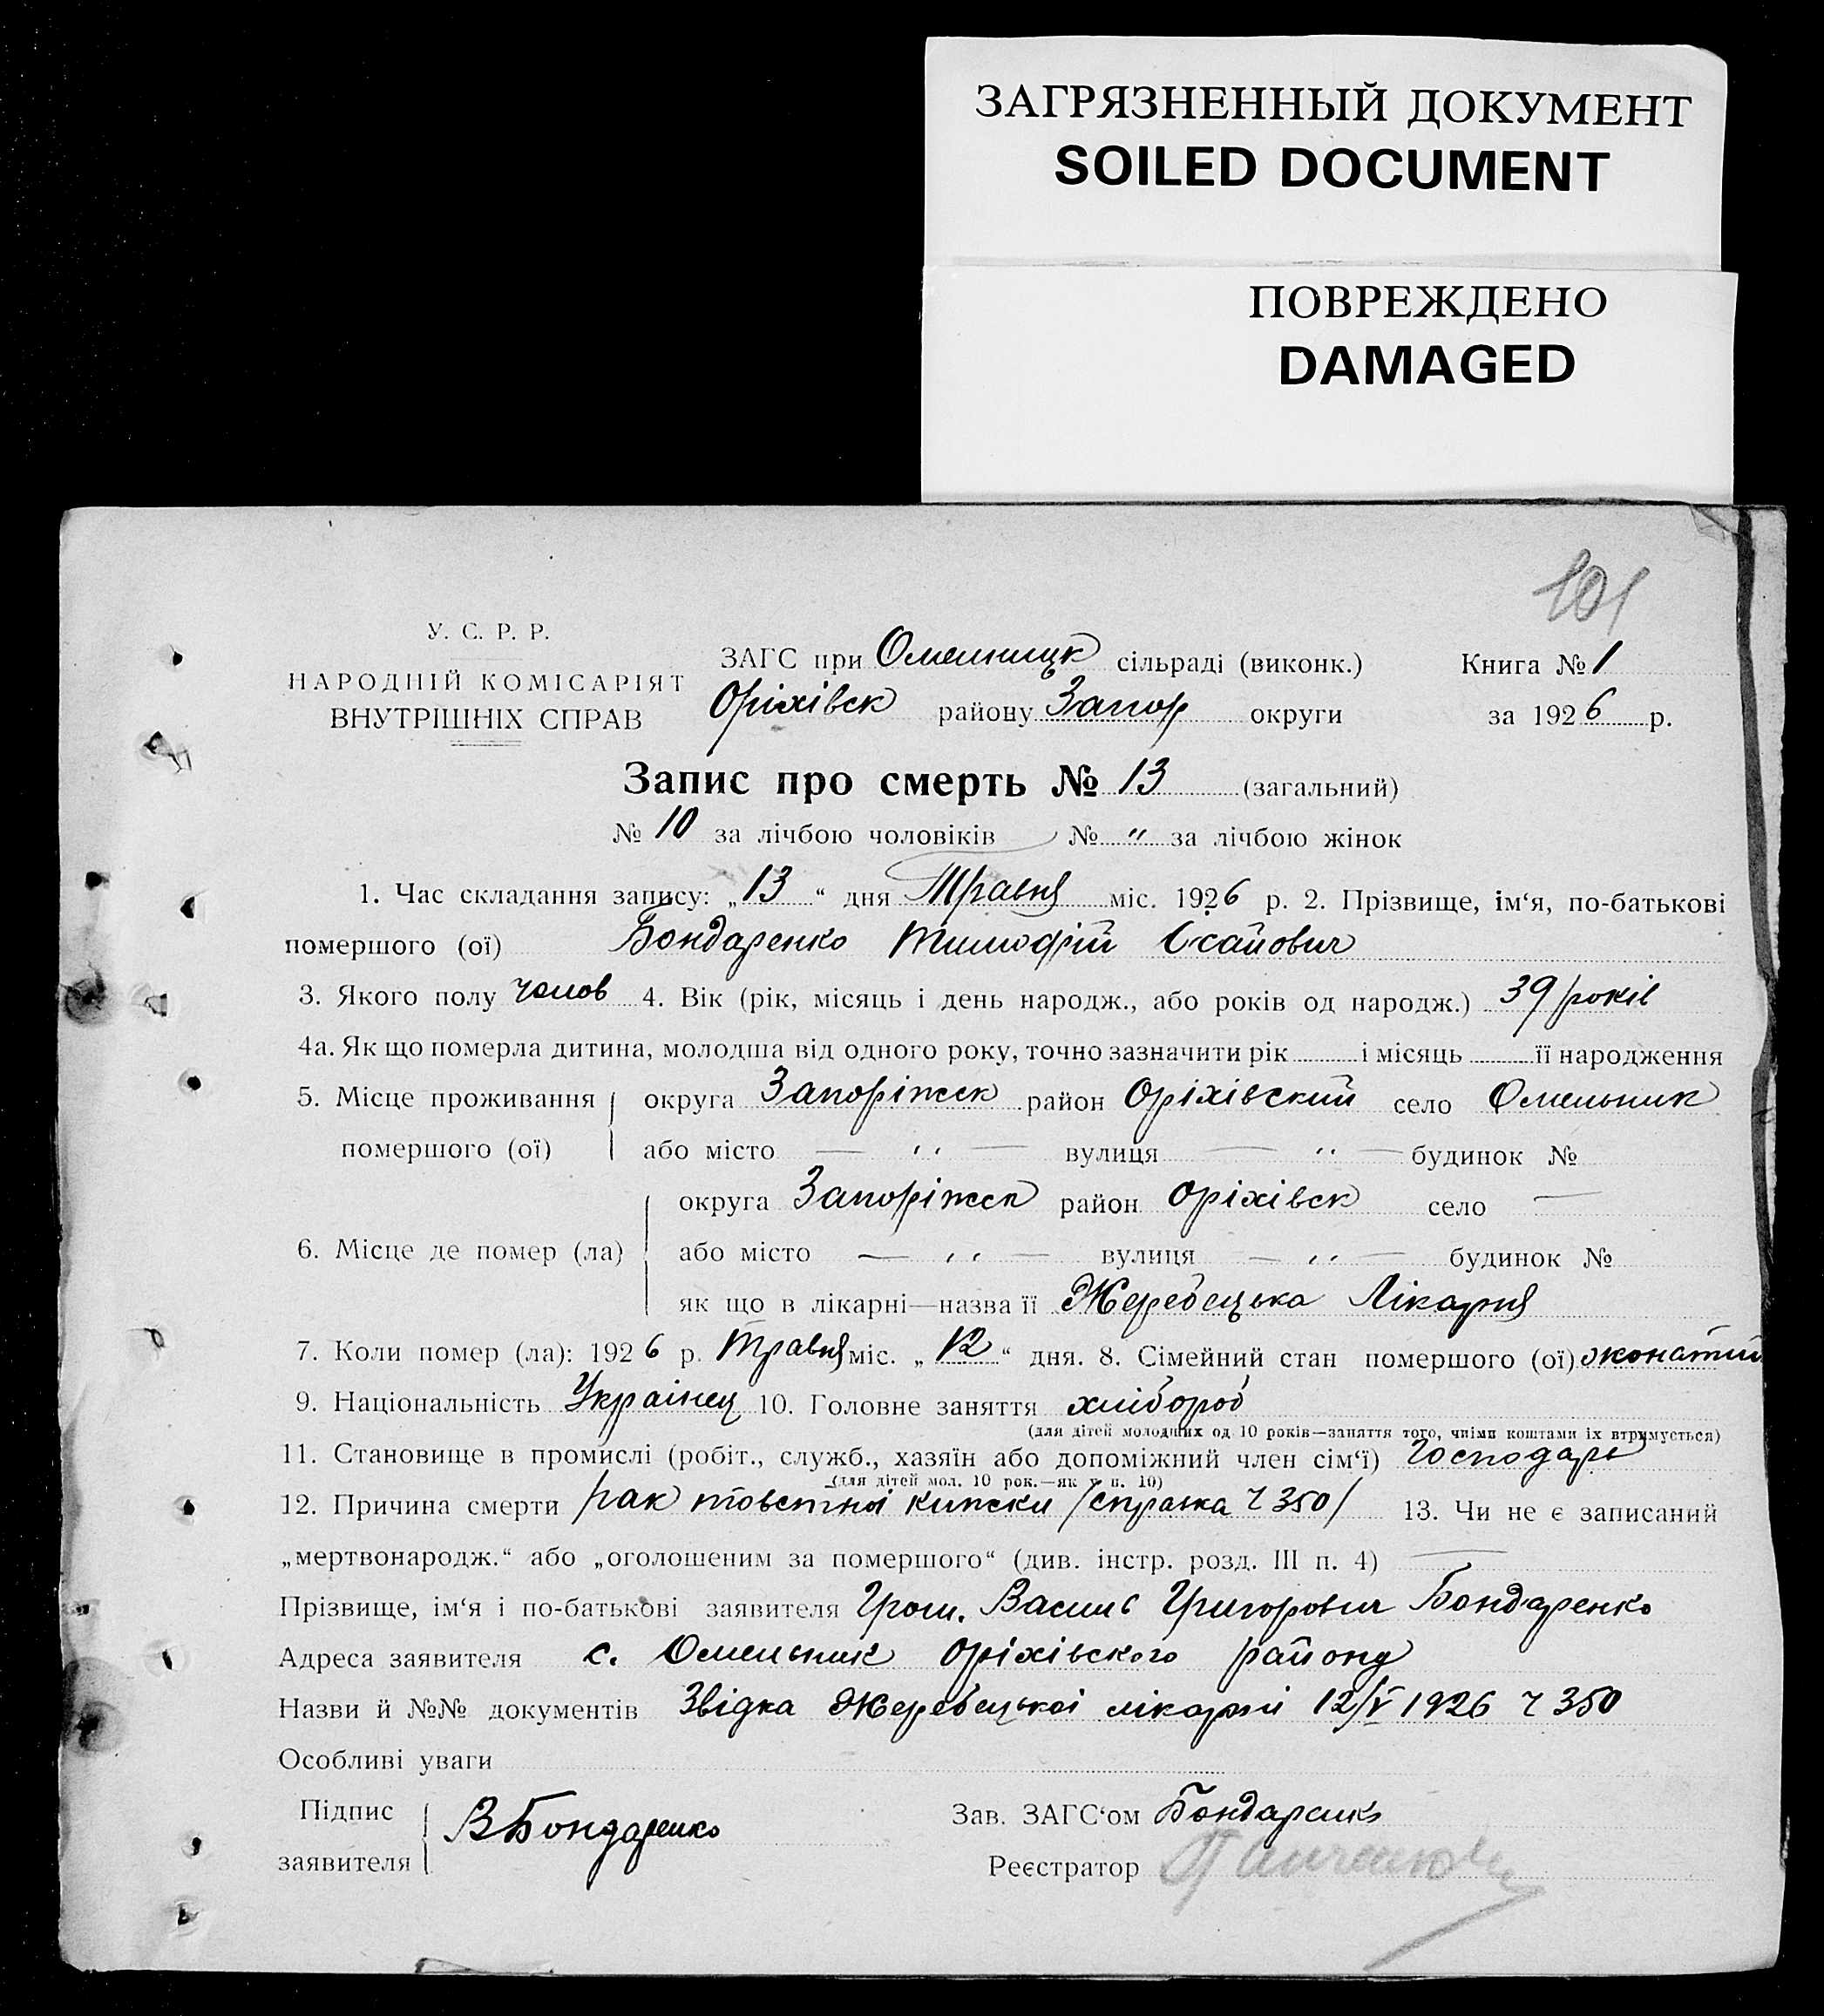 ЗАГРЯЗНЕННЫЙ ДОКУМЕНТ
SOILED DOCUMENT
ПОВРЕЖДЕНО
DAMAGED
101
У. С. Р. Р.
НАРОДНІЙ КОМІСАРІЯТ
ВНУТРІШНІХ СПРАВ
ЗАГС при Омельницк сільраді (виконк.) Книга № 1
Оріхівск району Запор округи за 1926 р.
Запис про смерть № 13 (загальний)
№ 10 за лічбою чоловіків № " за лічбою жінок
1. Час складання запису: „13“ дня Травня міс. 1926 р. 2. Прізвище, ім‘я, по-батькові
помершого (ої) Бондаренко Тимофій Ісайович
3. Якого полу чолов 4. Вік (рік, місяць і день народж., або років од народж.) 39 років
4а. Як що померла дитина, молодша від одного року, точно зазначити рік і місяць її народження
5. Місце проживання округа Запоріжск район Оріхівский село Омельник
помершого (ої) або місто — " — вулиця — " — будинок №
округа Запоріжск район Оріхівск село —
6. Місце де помер (ла) або місто — " — вулиця — " — будинок №
як що в лікарні—назва її Жеребецька Лікарня
7. Коли помер (ла): 1926 р. Травня міс. „12“ дня. 8. Сімейний стан помершого (ої) жонатий
9. Національність Українец 10. Головне заняття хлібороб
(для дітей молодших од 10 років—заняття того, чиїми коштами їх втримується)
11. Становище в промислі (робіт., служб., хазяїн або допоміжний член сім‘ї) Господарь
(для дітей мол. 10 рок.—як у п. 10)
12. Причина смерти рак товстної кишки /справка ч 350/ 13. Чи не є записаний
„мертвонародж.“ або „оголошеним за помершого“ (див. інстр. розд. III п. 4) —
Прізвище, ім‘я і по-батькові заявителя Гром. Василь Григорович Бондаренко
Адреса заявителя с. Омельник Оріхівского району
Назви й №№ документів Звідка Жеребецької лікарні 12/V 1926 ч 350
Особливі уваги
Підпис
заявителя ВБондаренко
Зав. ЗАГС‘ом Бондаренко
Реєстратор